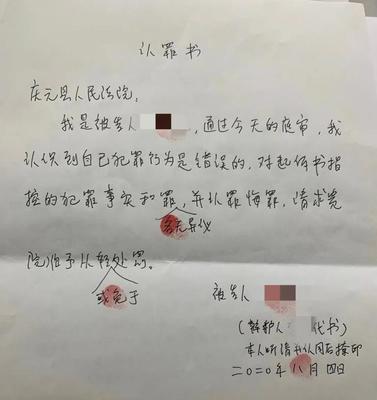 认罪书
庆元县人民法院:
我是被告人 ,通过今天的庭审,我
认识到自己犯罪行为是错误的,对起诉书指
控的犯罪事实和罪,并认罪悔罪,请求贵
名无异议
院准予从轻处罚。
或免于
被告人
(辩护人 代书)
本人听清并认同后捺印
二〇二〇年八月四日